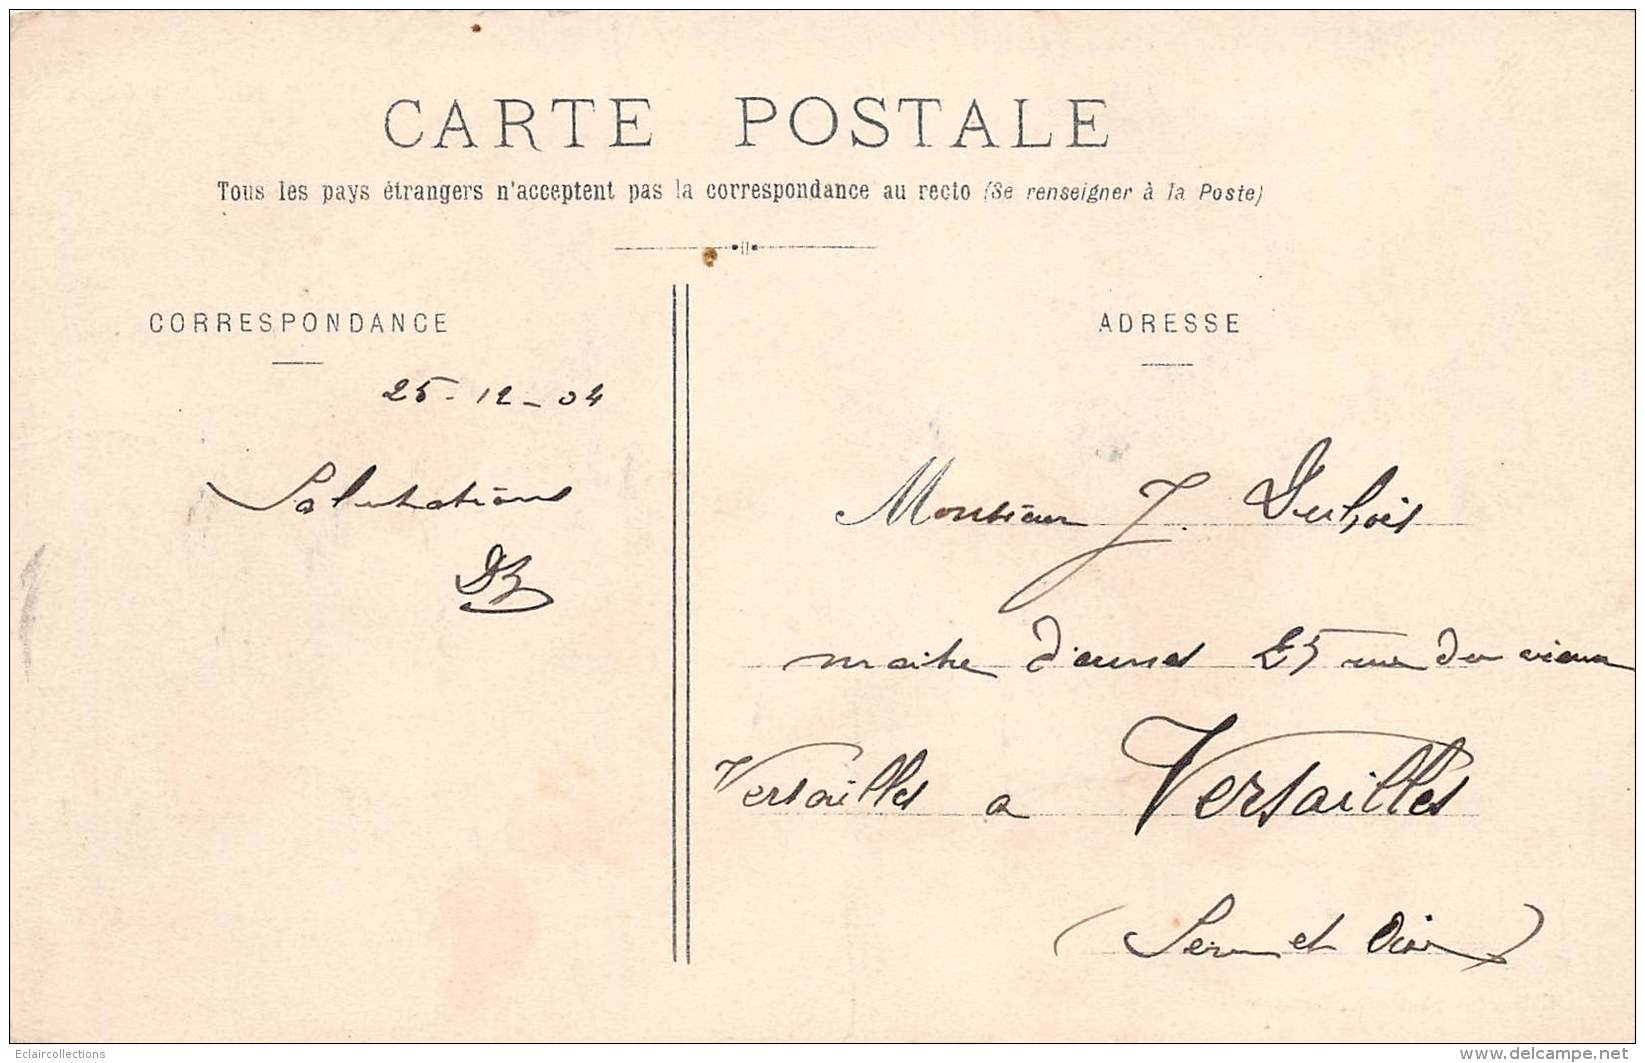 CARTE POSTALE
Tous les pays étrangers n'acceptent pas la correspondance au recto (Se renseigner à la Poste)
CORRESPONDANCE
25-12-04
Salutations
ADRESSE
Monsieur J. Dubois
maitre d'armes 25 rue du vieux
Versailles a Versailles
(Seine et Oise)
Eclaircollections
www.delcampe.net